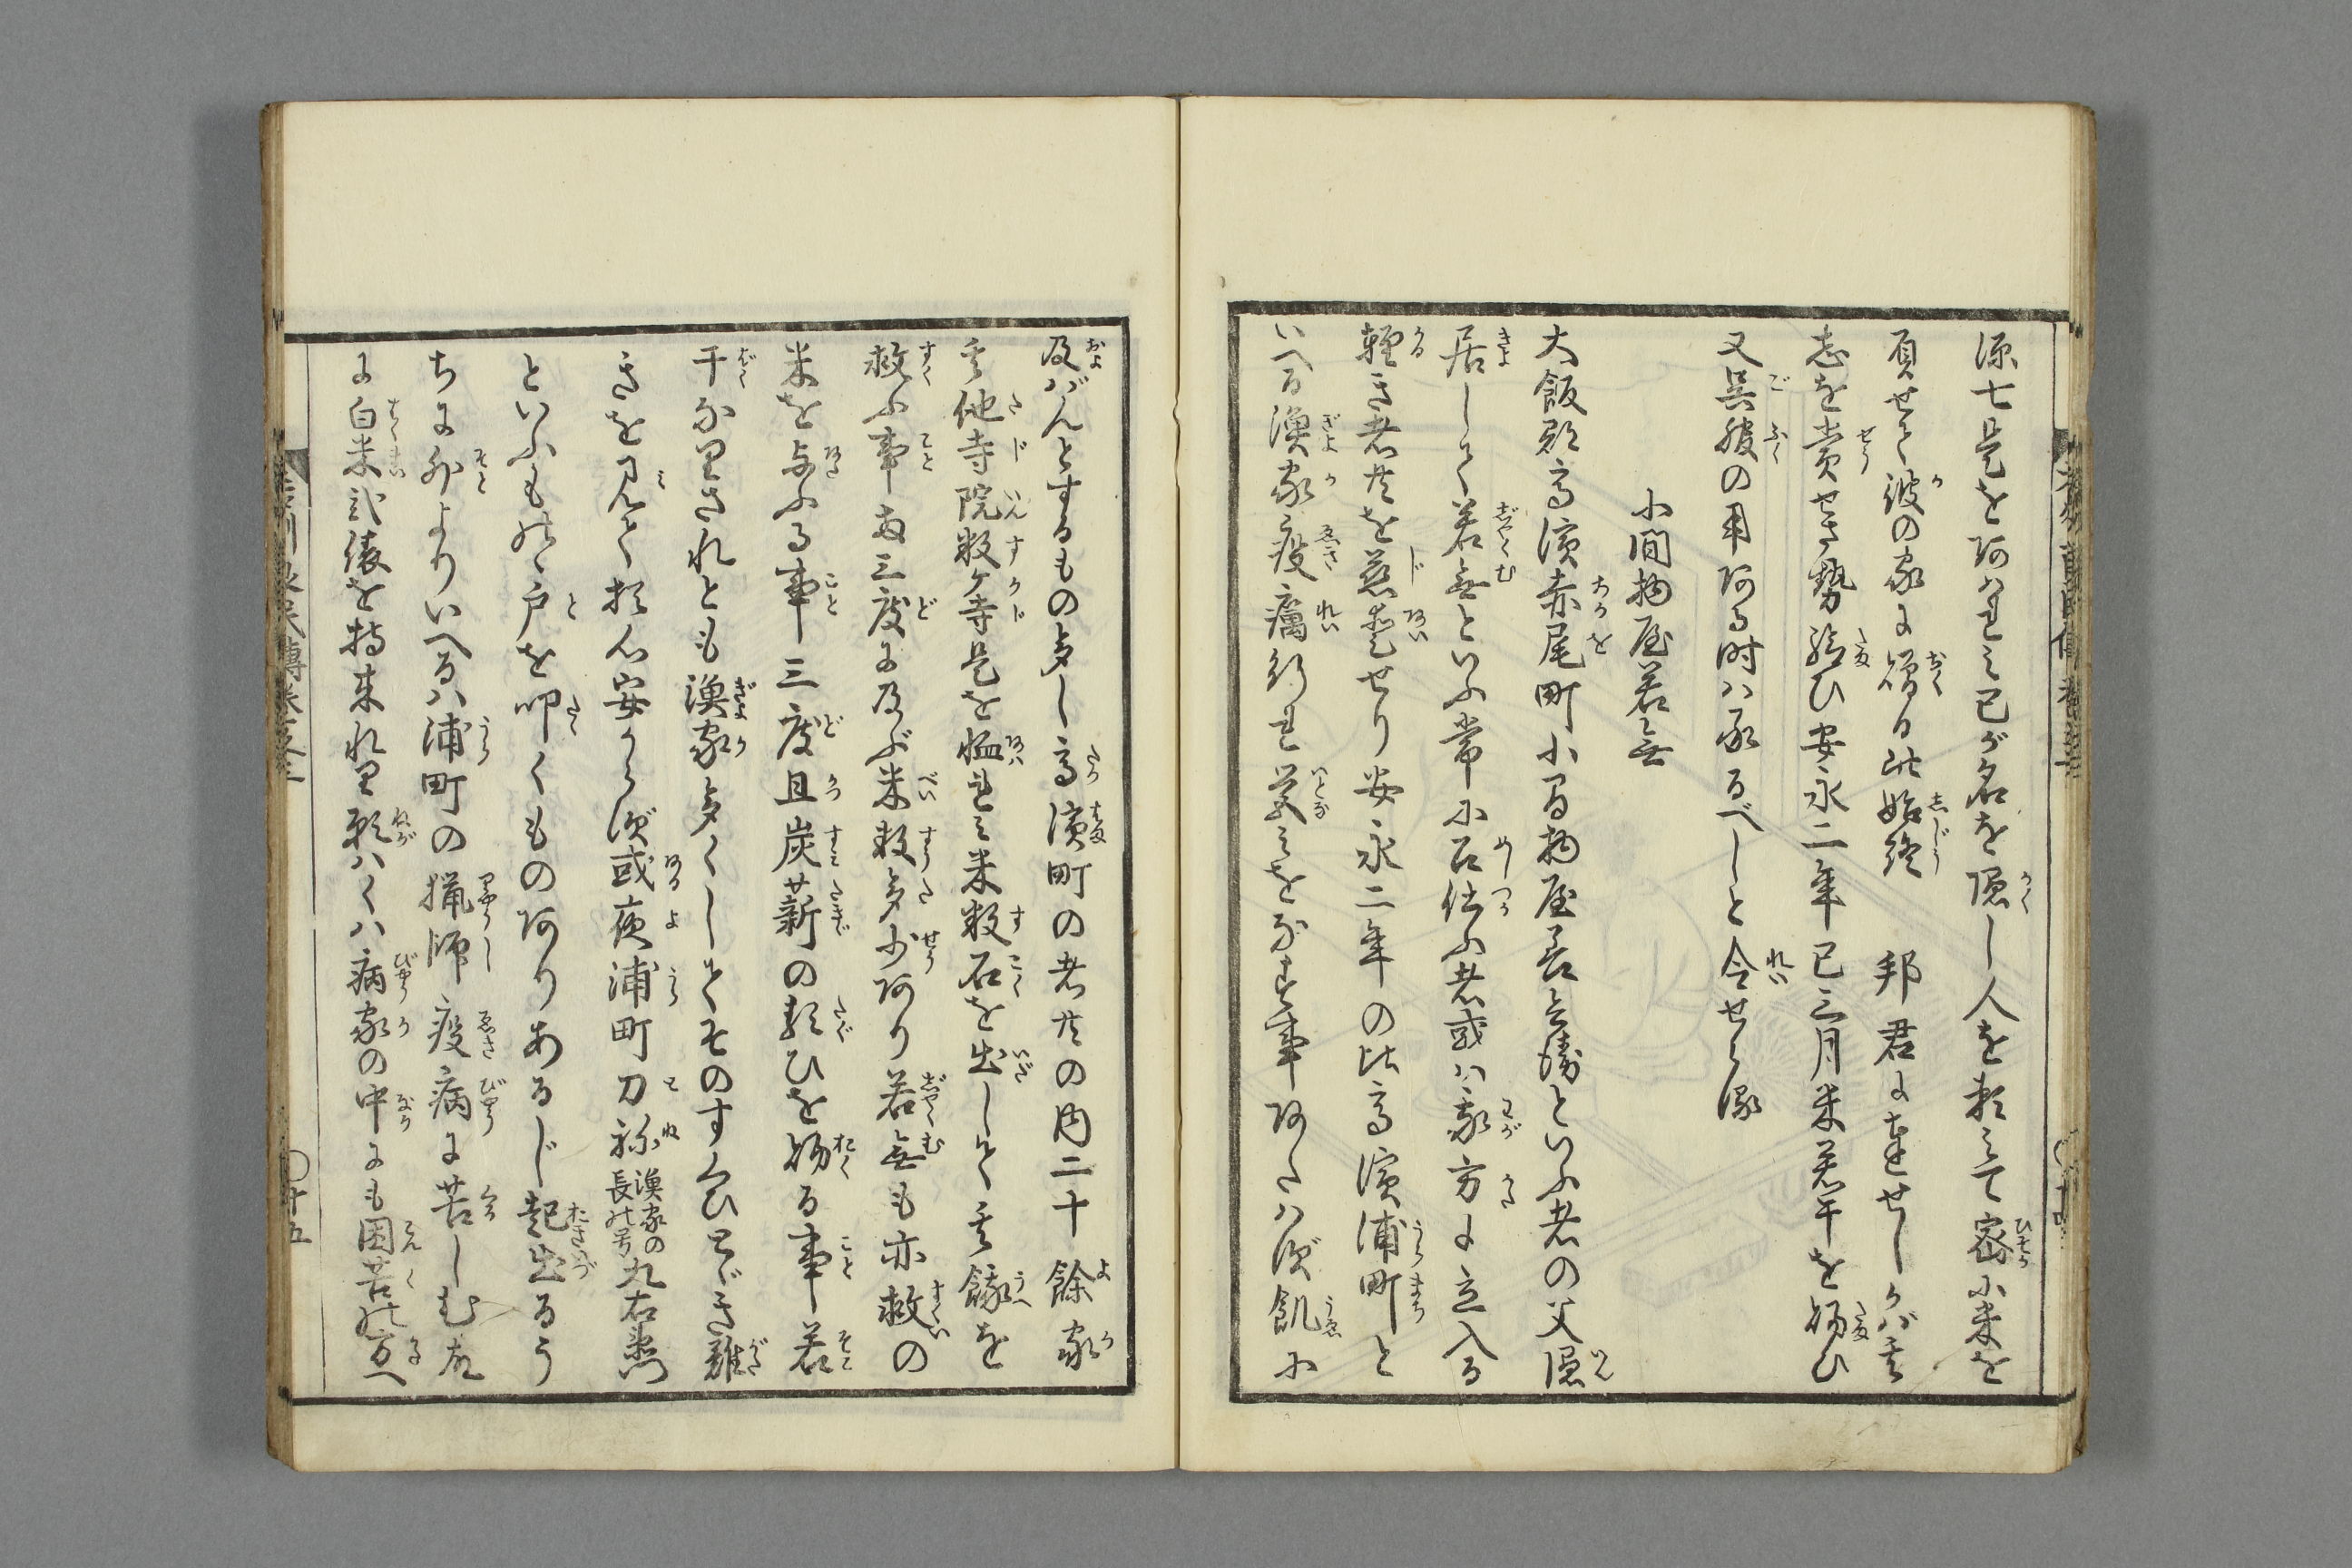 源七是をあはれミ己が名を隠し人を頼ミて密に米を
負せて彼の家に贈る此始終　邦君に達せしかば其
志を賞せさせ給ひ安永二年巳三月米若干を賜ひ
又呉服の用ある時ハ承るべしと令せらる
小間物屋若無
大飯郡高濱赤尾町小間物屋善兵衛といふ者の父隠
居して若無といふ常に召仕ふ者或ハ家方に立入る
軽き者共を慈愛せり安永二年の比高濱浦町と
いへる漁家疫癘行れ営ミをなす事あたハず飢に
及バんとするもの多し高濱町の者共の内二十餘家
其他寺院数ケ寺是を愍ミ米数石を出して其餓を
救ふ事両三度に及ぶ米数多少あり若無も亦救の
米を与ふる事三度且炭薪の類ひを賜る事若
干なりされとも漁家多くしてそのすくひとゞき難
きを見て頻心安からず或夜浦町刀祢漁家の長の号九右衛門
といふものゝ戸を叩くものありあるじ起出るう
ちに外よりいへるハ浦町の猟師疫病に苦しむ故
に白米弐俵を持来れり願ハくハ病家の中にも困苦の方へ
十五